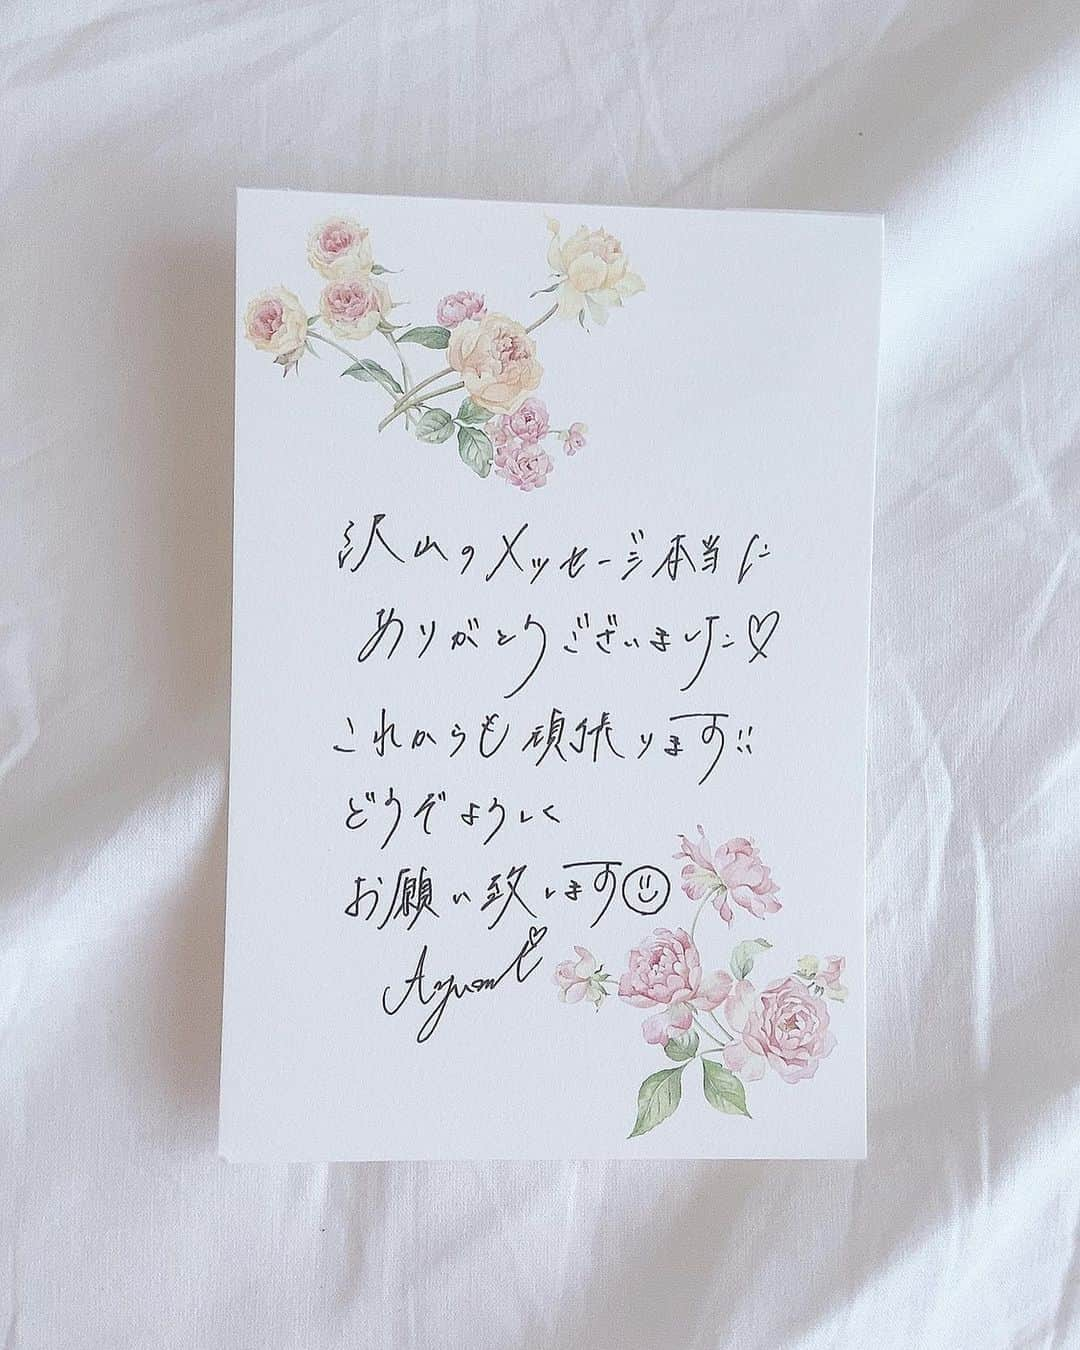 沢山のメッセージ本当に
ありがとうございました♡
これからも頑張ります!!
どうぞよろしく
お願い致します☺
Ayumi♡